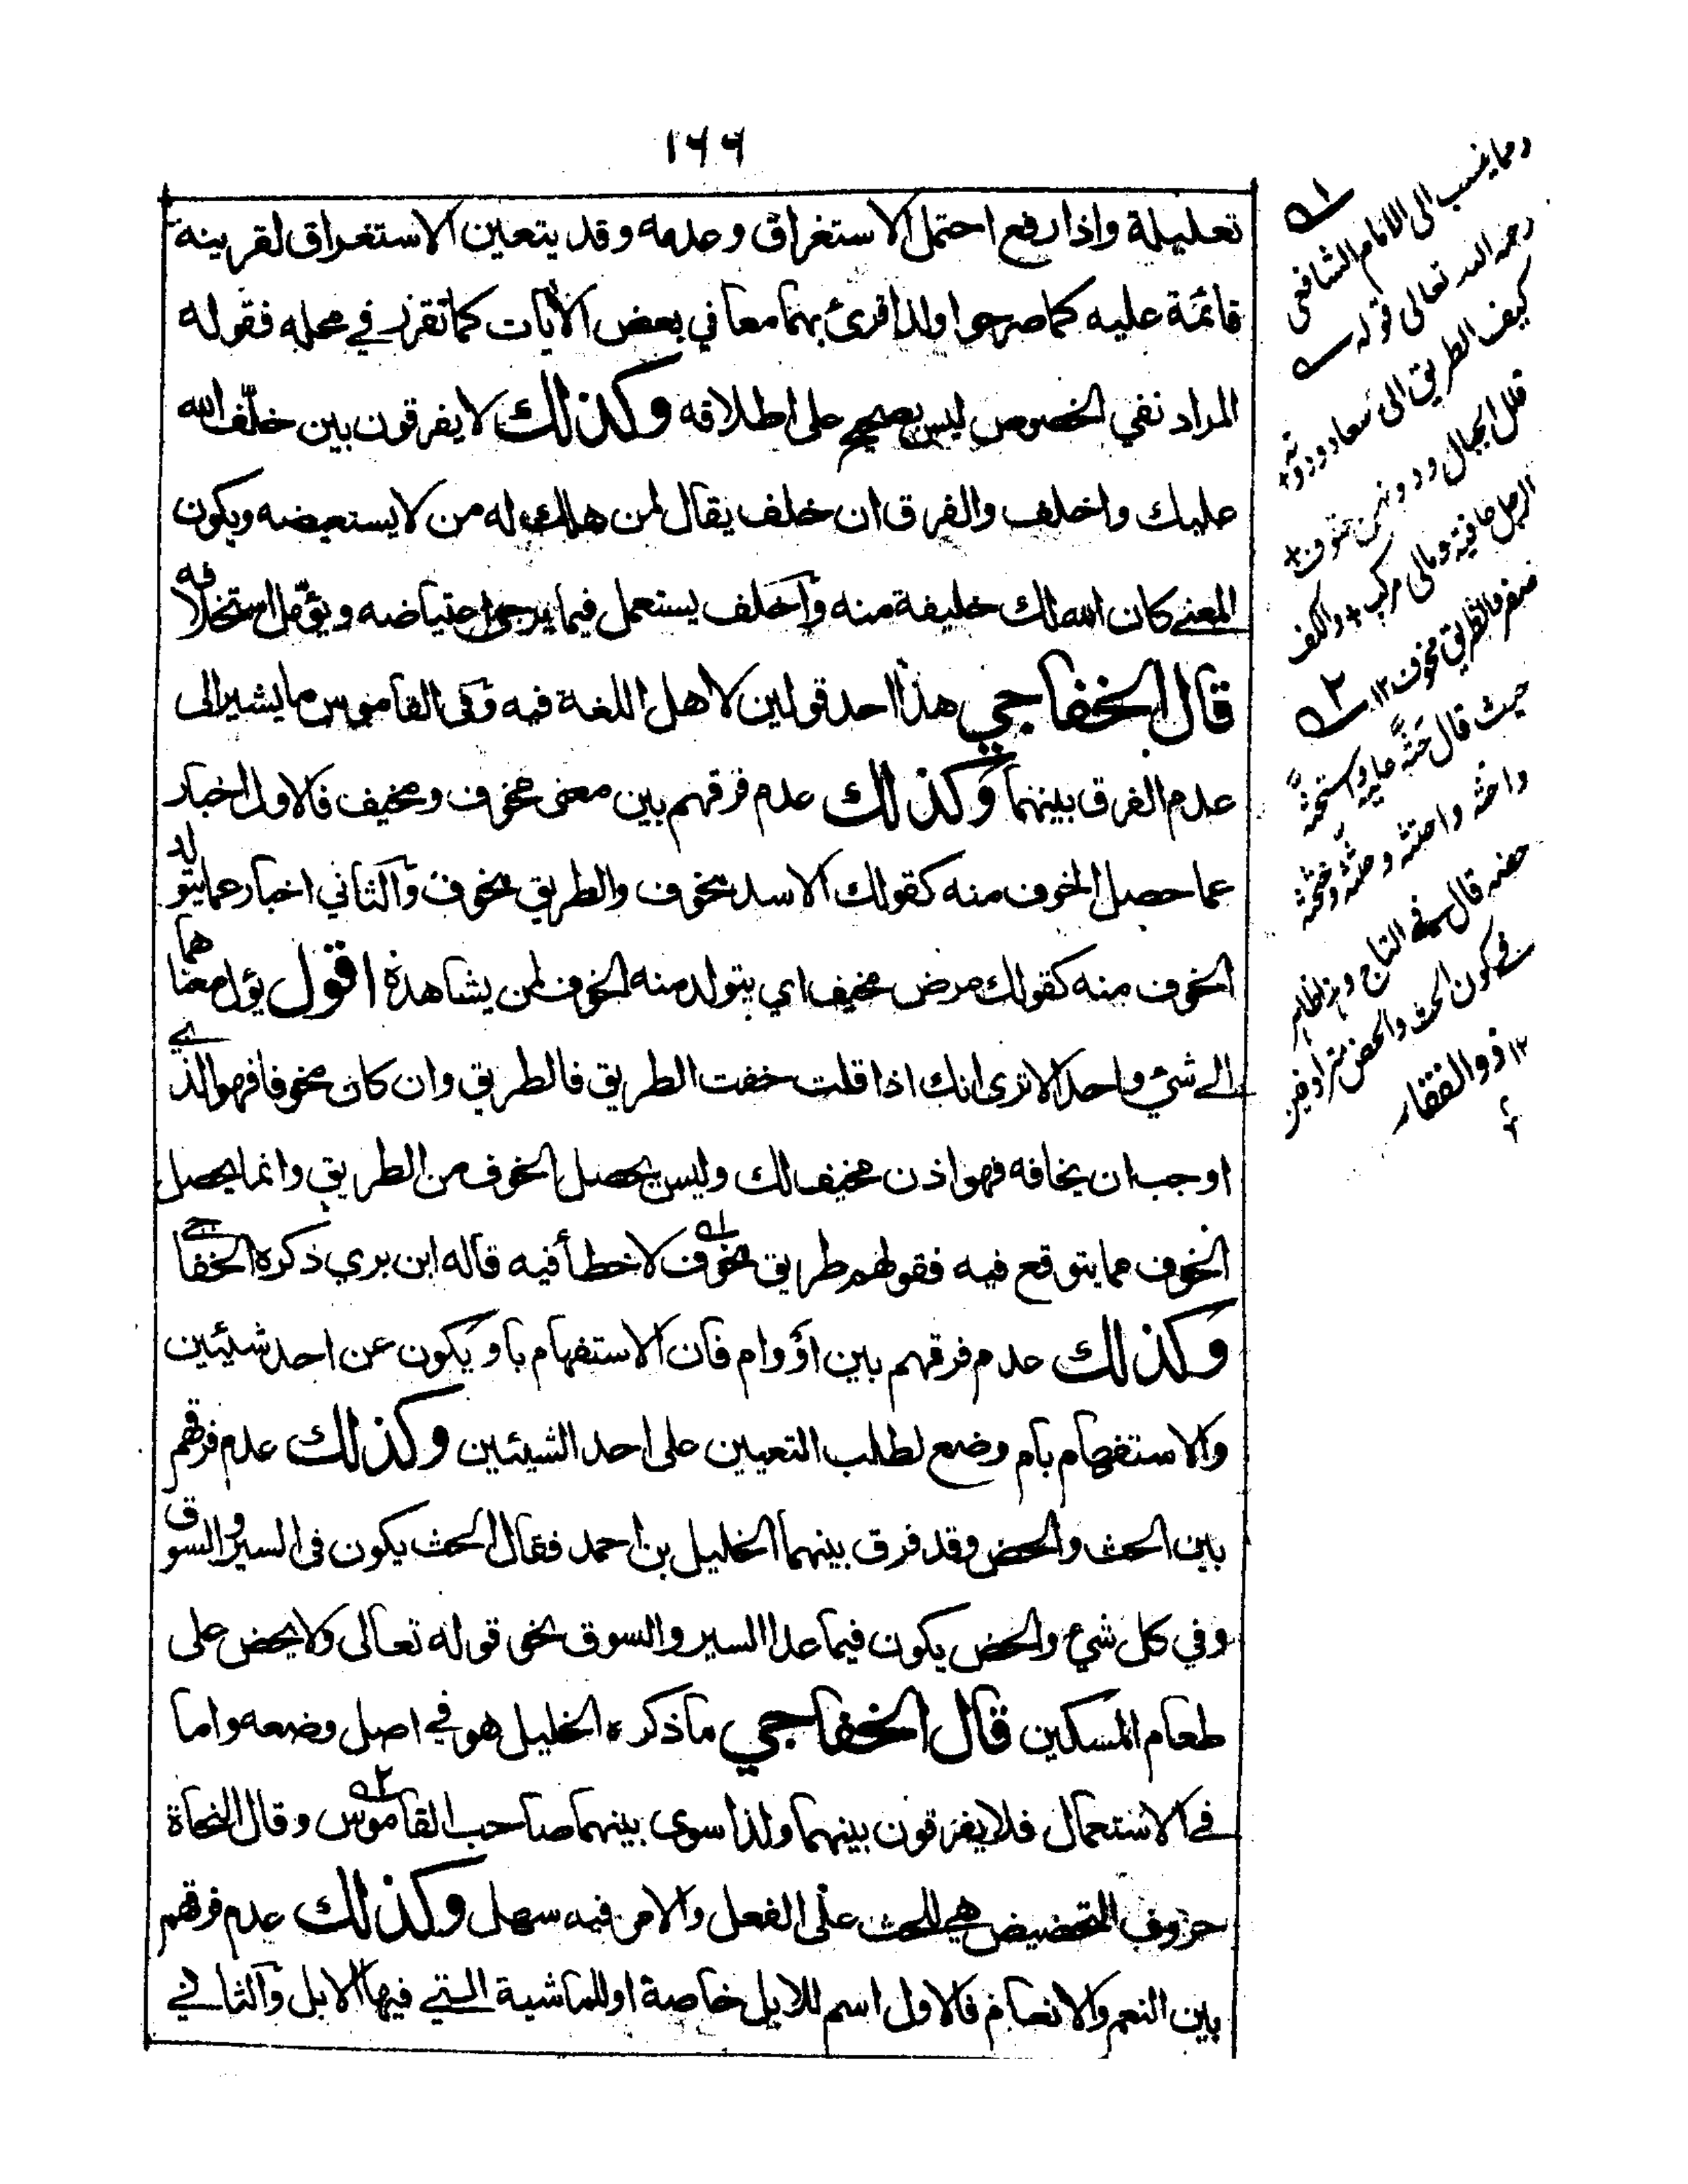 ١٦٦
تعليلة واذا رفع احتمل الاستغراق وعدمه وقد يتعين الاستغراق لقرينه
قائمة عليه كما صرحوا ولذا قرئ بهما معا في بعض الآيات كما تقرر في محله فقوله
المراد نفي الخصوص ليس بصحيح على اطلاقه وكذلك لا يفرقون بين خلّف الله
عليك واخلف والفرق ان خلف يقال لمن هلك له من لا يستعيضه ويكون
المعنے كان الله لك خليفة منه واخلف يستعمل فيما يرجى اعتياضه ويؤمل استخلافه
قال الخفاجي هذا احد قولين لاهل اللغة فيه وفى القاموس ما يشير الى
عدم الفرق بينهما وكذلك عدم فرقهم بين معنى مخوف ومخيف فالاول اخبار
عما حصل الخوف منه كقولك الاسد مخوف والطريق مخوف والثاني اخبار عما يتولد
الخوف منه كقولك مرض مخيف اي يتولد منه الخوف لمن يشاهده اقول يؤل معناهما
الے شئ واحد الا ترى انك اذا قلت خفت الطريق فالطريق وان كان مخوفا فهو الذي
اوجب ان يخافه فهو اذن مخيف لك وليس يحصل الخوف من الطريق وانما يحصل
الخوف مما يتوقع فيه فقولهم طريق مخوف لا خطأ فيه قاله ابن بري ذكره الخفاجي
وكذلك عدم فرقهم بين او وام فان الاستفهام باو يكون عن احد شيئين
والاستفهام بام وضع لطلب التعيين على احد الشيئين وكذلك عدم فرقهم
بين الحث والحض وقد فرق بينهما الخليل بن احمد فقال الحث يكون فى السير والسوق
وفي كل شيء والحض يكون فيما عدا السير والسوق نحو قوله تعالى ولا يحض على
طعام المسكين قال الخفاجي ما ذكره الخليل هو في اصل وضعه واما
فے الاستعمال فلا يفرقون بينهما ولذا سوى بينهما صاحب القاموس وقال النحاة
حروف التحضيض هي للحث على الفعل والامر فيه سهل وكذلك عدم فرقهم
بين النعم والانعام فالاول اسم للابل خاصة او للماشية التے فيها الابل والثاني
١
ومما ينسب الى الامام الشافعي
رحمه الله تعالى قوله
كيف الطريق الى سعاد ودونها
قلل الجبال ودونهن حتوف
الرجل حافية ومالى مركب والكف
صفر والطريق مخوف ١٢
٢
حيث قال حثّه عليه واستحثّه
واحثه واحتثه وحثثه وحثحثه
حضه قال فے التاج وهو ظاهر
فے كون الحث والحض مترادفين
١٢ ذو الفقار